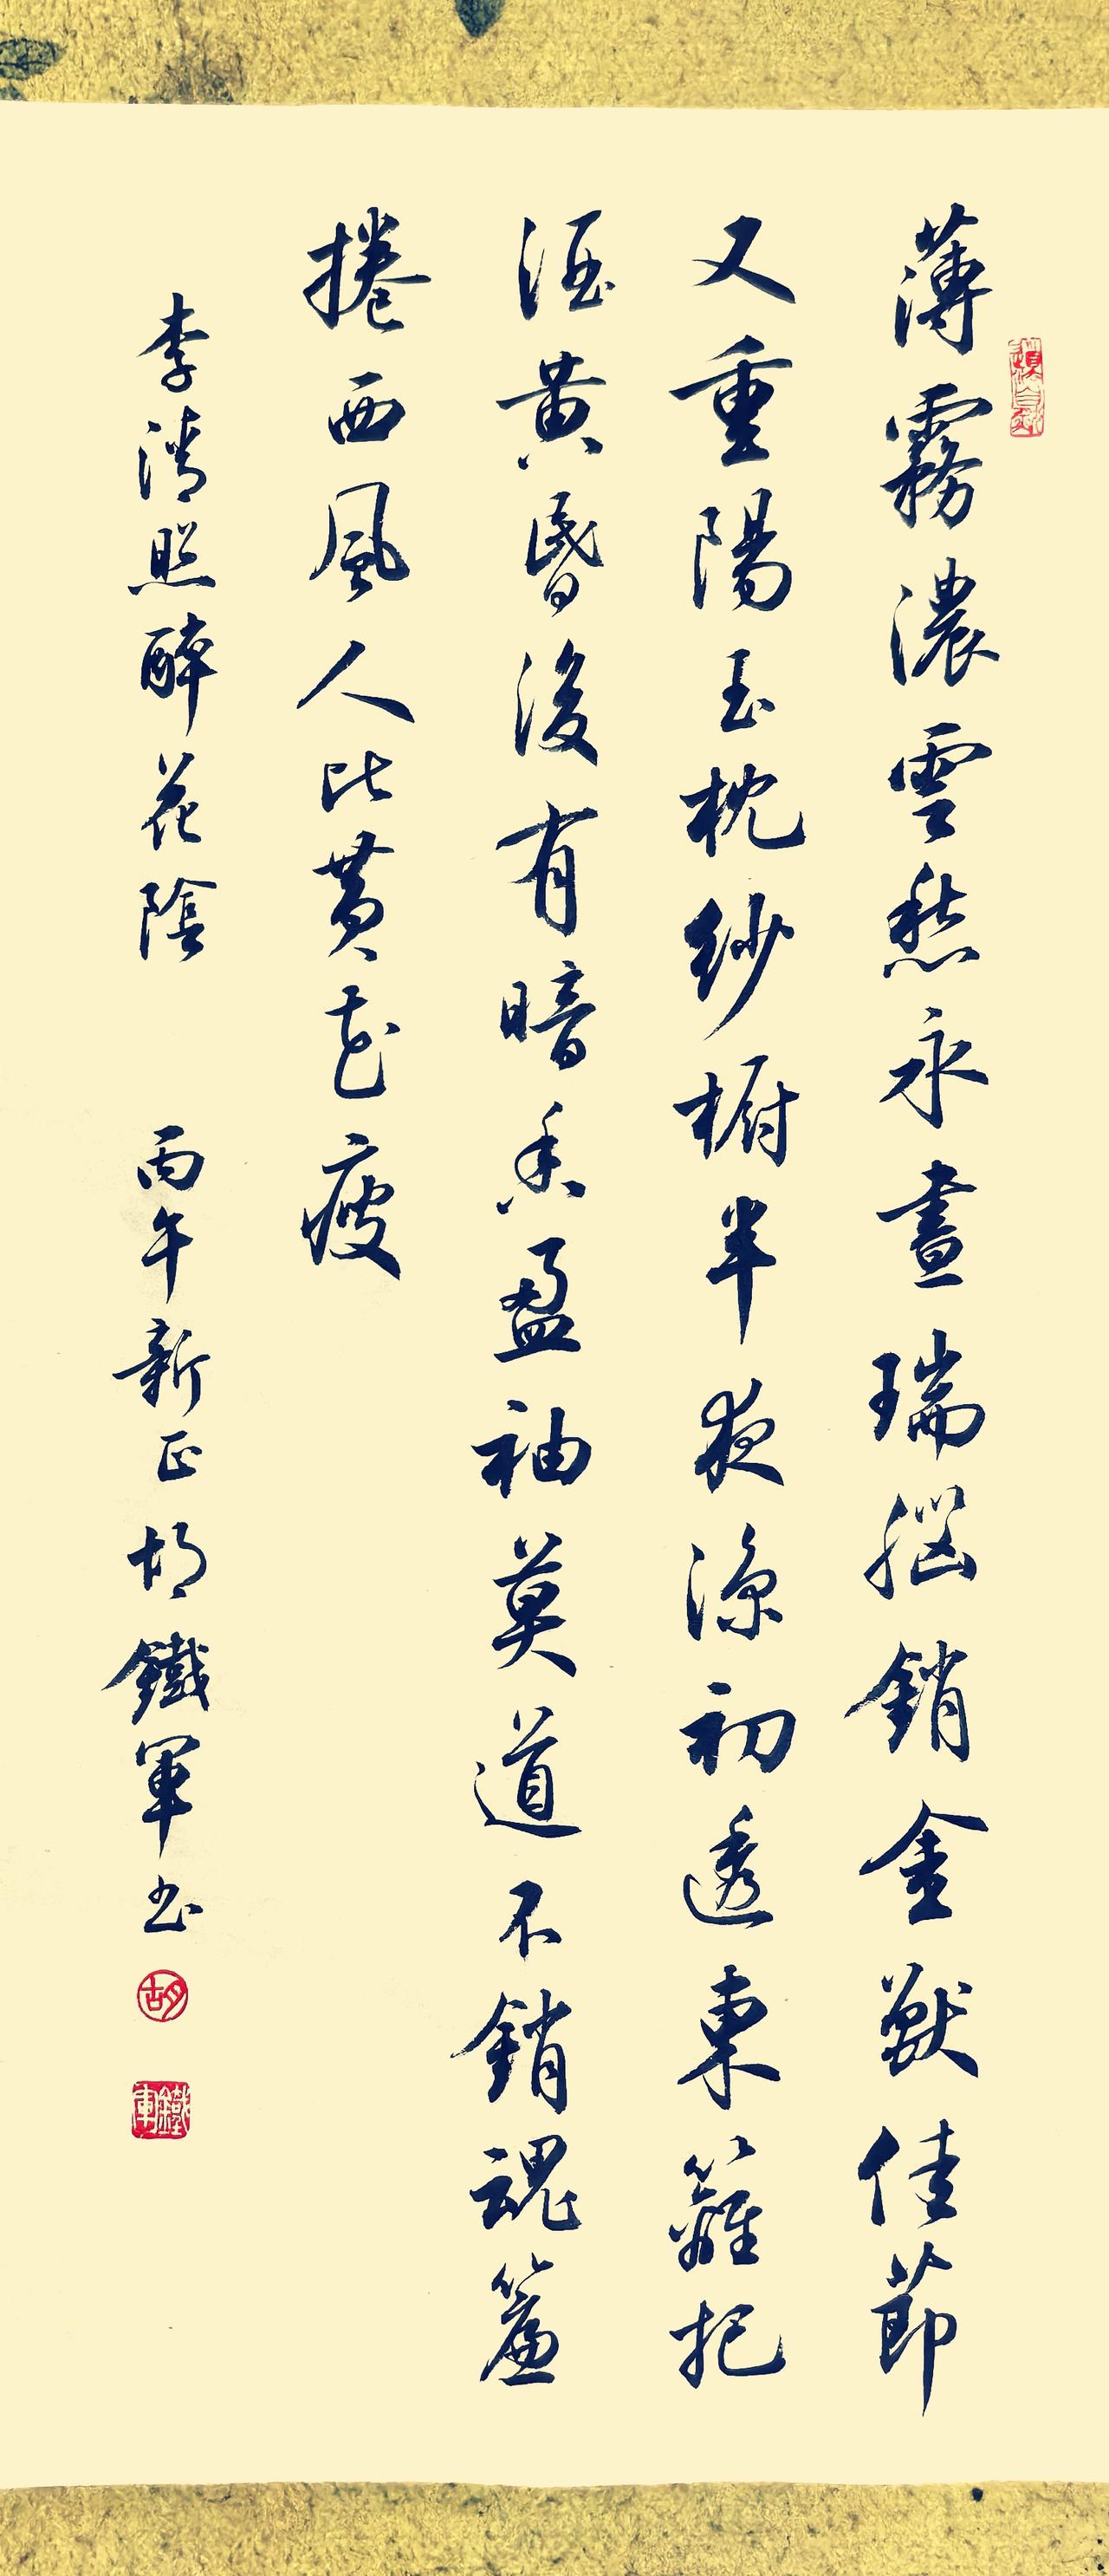 薄霧濃雲愁永晝瑞腦銷金獸佳節
又重陽玉枕紗橱半夜涼初透東籬把
酒黄昏後有暗香盈袖莫道不銷魂簾
捲西風人比黄花瘦
李清照醉花陰 丙午新正胡鐵軍书
胡
鐵軍